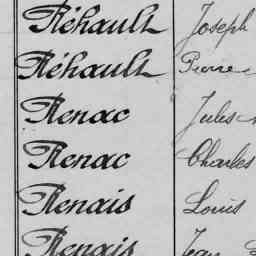 Réhault Joseph
Réhault Pierre
Renac Jules
Renac Charles
Renais Louis
Renais Jean